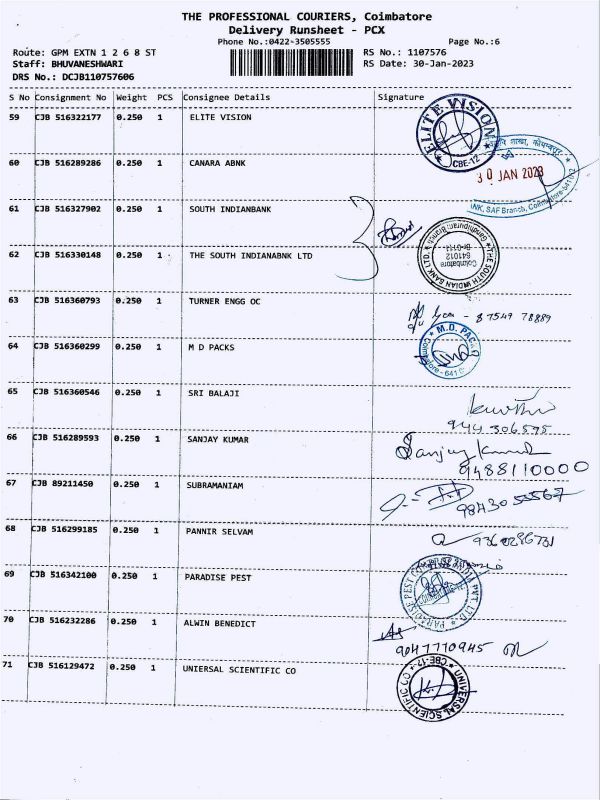 THE PROFESSIONAL COURIERS, Coimbatore
Delivery Runsheet - PCX
Phone No.:0422-3505555 Page No.:6
Route: GPM EXTN 1 2 6 8 ST RS No.: 1107576
Staff: BHUVANESHWARI RS Date: 30-Jan-2023
DRS No.: DCJB110757606
S No Consignment No Weight PCS Consignee Details Signature
59 CJB 516322177 0.250 1 ELITE VISION
ELITE VISION
CBE-12
60 CJB 516289286 0.250 1 CANARA ABNK
30 JAN 2023
SAF Branch, Coimbatore-641012
61 CJB 516327902 0.250 1 SOUTH INDIANBANK
62 CJB 516330148 0.250 1 THE SOUTH INDIANABNK LTD
THE SOUTH INDIAN BANK LTD.
Gandhipuram Branch
Coimbatore
641012
63 CJB 516360793 0.250 1 TURNER ENGG OC
87549 78889
64 CJB 516360299 0.250 1 M D PACKS
M.D. PACKS
65 CJB 516360546 0.250 1 SRI BALAJI
944 306595
66 CJB 516289593 0.250 1 SANJAY KUMAR
Sanjay Kumar
9488110000
67 CJB 89211450 0.250 1 SUBRAMANIAM
9843055567
68 CJB 516299185 0.250 1 PANNIR SELVAM
69 CJB 516342100 0.250 1 PARADISE PEST
PARADISE PEST CONTROL INDIA PVT. LTD.
70 CJB 516232286 0.250 1 ALWIN BENEDICT
9047710945
71 CJB 516129472 0.250 1 UNIERSAL SCIENTIFIC CO
UNIVERSAL SCIENTIFIC CO
CBE-12